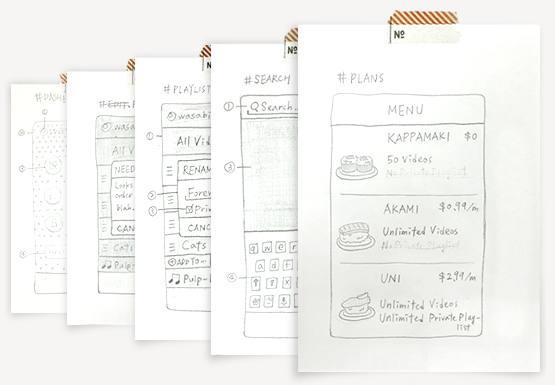 #DASH
#EDIT
wasa
All Vid
NEED
Looks
order
blah.
CANC
Cats
Pulp-
#PLAYLIST
①
②
③
wasabi
All Vid
RENAM
Forev
Priv
CANC
Cats
ADD TO
Pulp-
#SEARCH
№
①
Search..
③
④
q w e r
a d f
№
#PLANS
MENU
KAPPAMAKI $0
50 Videos
No Private Playlist
AKAMI $0.99/m
Unlimited Videos
No Private Playlist
UNI $2.99/m
Unlimited Videos
Unlimited Private Play-
list